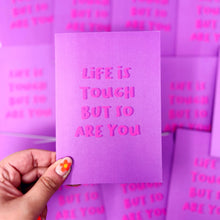 LiFE iS
TOUGH
BUT SO
ARE YOU